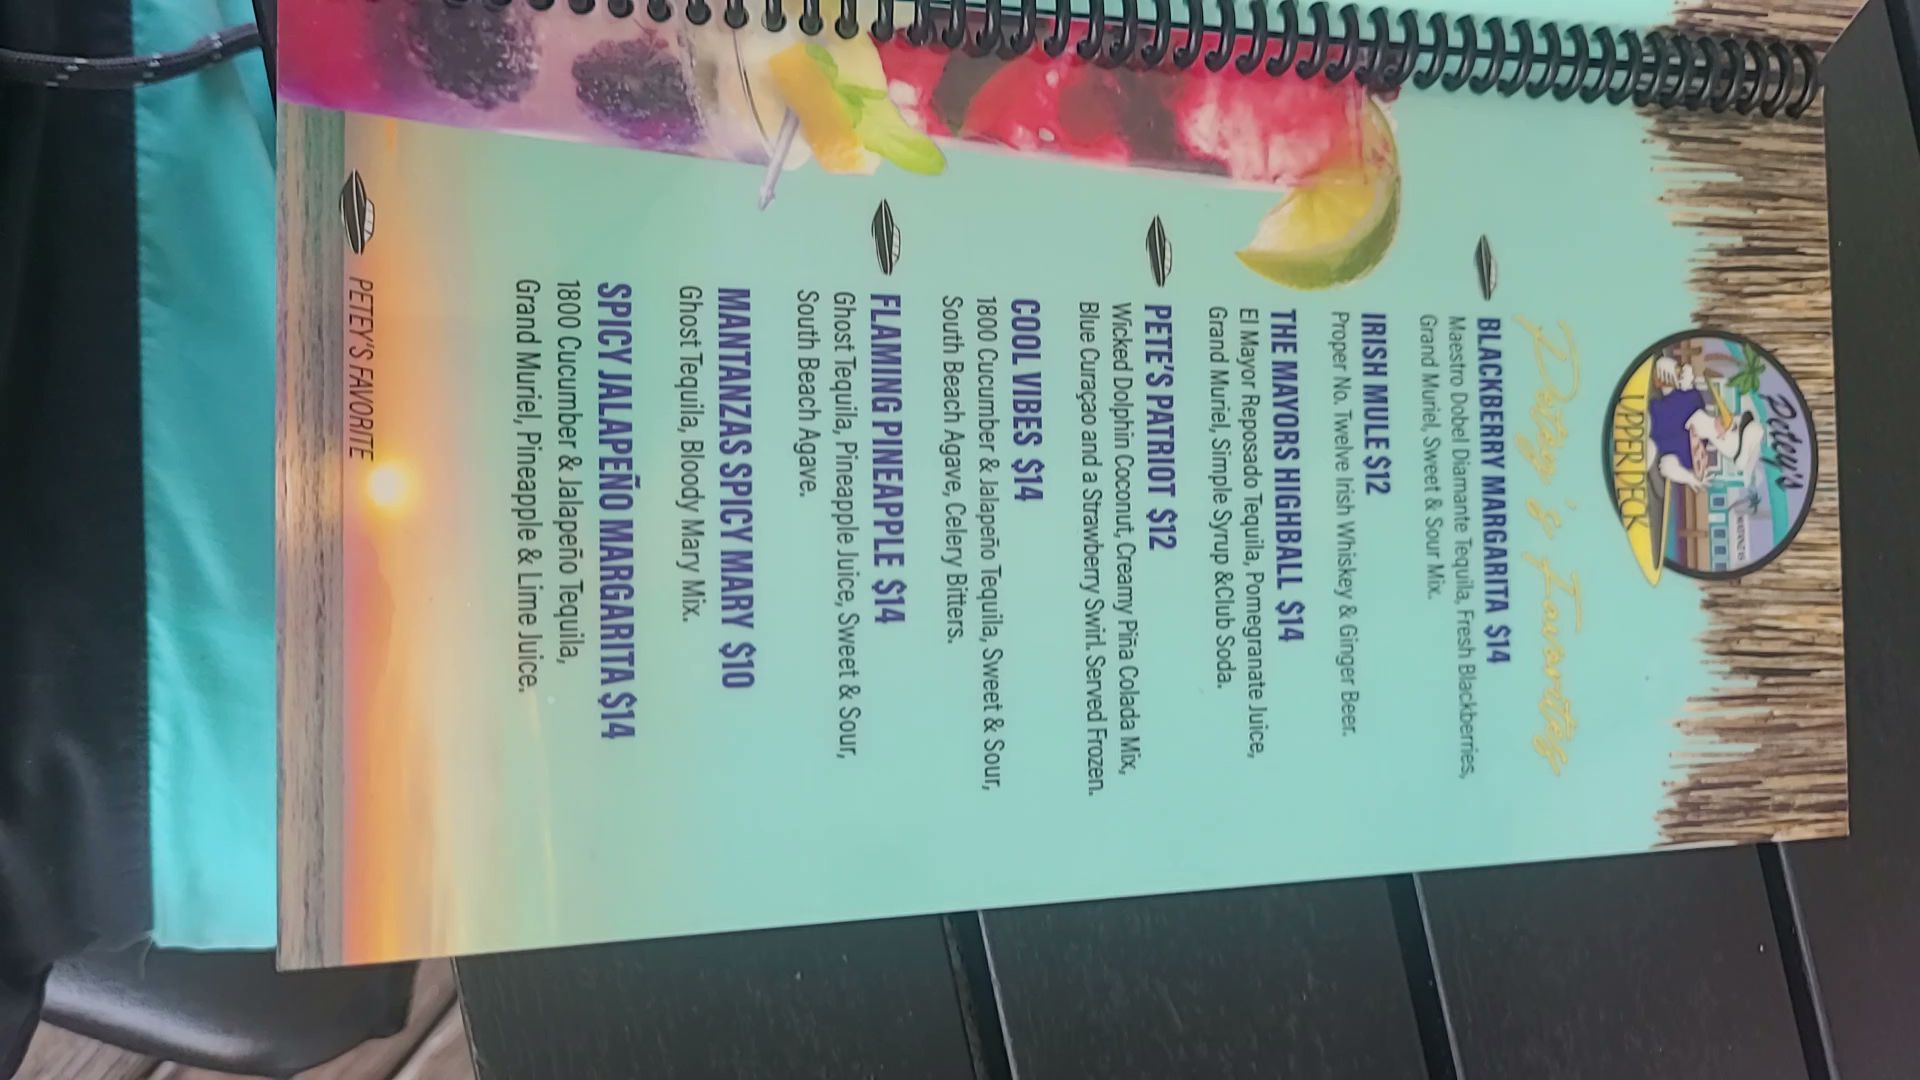 Petey's
UPPER DECK
Petey's Favorites
BLACKBERRY MARGARITA $14
Maestro Dobel Diamante Tequila, Fresh Blackberries,
Grand Muriel, Sweet & Sour Mix.
IRISH MULE $12
Proper No. Twelve Irish Whiskey & Ginger Beer.
THE MAYORS HIGHBALL $14
El Mayor Reposado Tequila, Pomegranate Juice,
Grand Muriel, Simple Syrup &Club Soda.
PETE'S PATRIOT $12
Wicked Dolphin Coconut, Creamy Piña Colada Mix,
Blue Curaçao and a Strawberry Swirl. Served Frozen.
COOL VIBES $14
1800 Cucumber & Jalapeño Tequila, Sweet & Sour,
South Beach Agave, Celery Bitters.
FLAMING PINEAPPLE $14
Ghost Tequila, Pineapple Juice, Sweet & Sour,
South Beach Agave.
MANTANZAS SPICY MARY $10
Ghost Tequila, Bloody Mary Mix.
SPICY JALAPEÑO MARGARITA $14
1800 Cucumber & Jalapeño Tequila,
Grand Muriel, Pineapple & Lime Juice.
PETEY'S FAVORITE